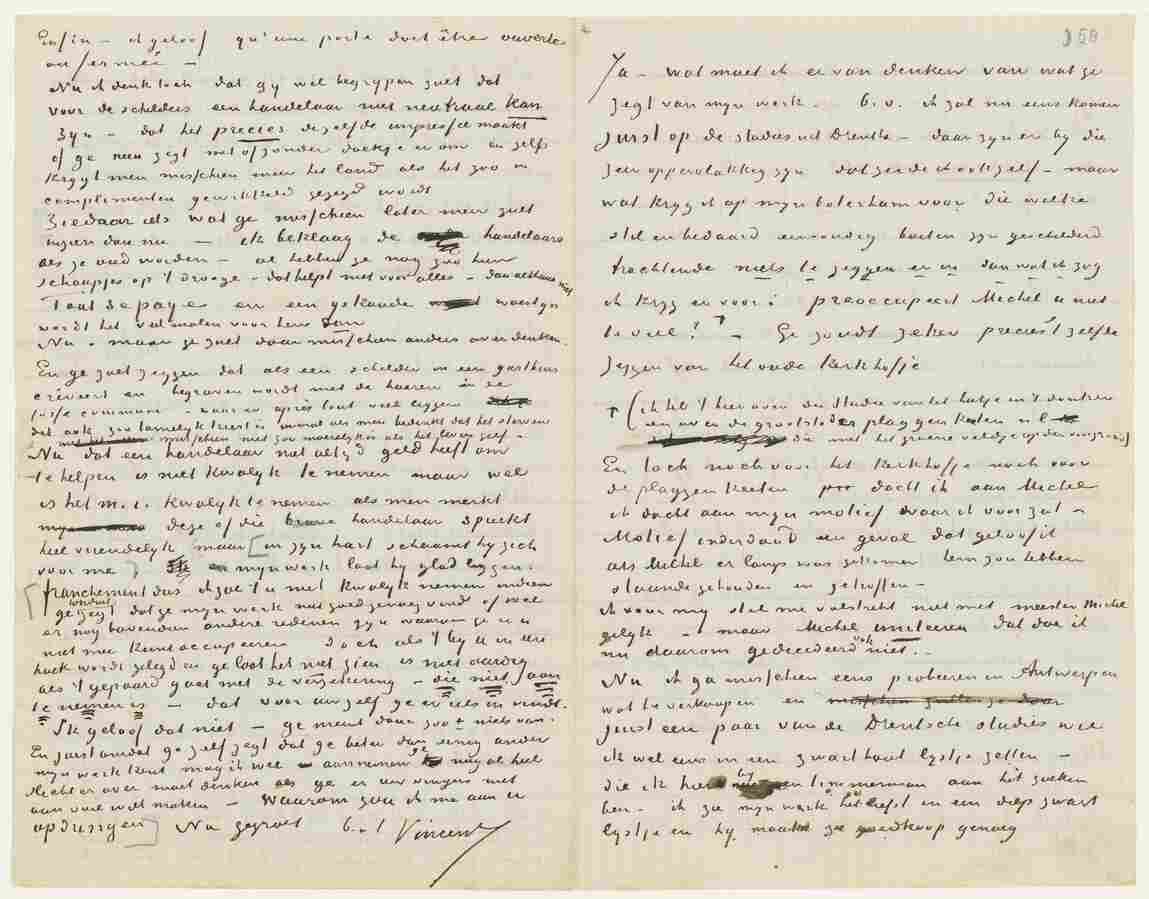 Enfin – ik geloof qu'une porte doit être ouverte
ou fermée –
Nu ik denk toch dat gy wel begrypen zult dat
voor de schilders een handelaar niet neutraal kan
zyn – dat het precies dezelfde impressie maakt
of ge neen zegt met of zonder doekje er om en zelfs
krygt men misschien meer het land als het zoo in
complimenten gewikkeld gezegd wordt
Ziedaar iets wat ge misschien later meer zult
inzien dan nu – ik beklaag de handelaars
als ze oud worden – al hebben ze nog zoo hun
schaapjes op 't drooge – dat helpt niet voor alles – dan althans niet
Tout se paye en een yskoude woestyn
wordt het vele malen voor hen dan
Nu – maar ge zult daar misschien anders over denken.
En ge zult zeggen dat als een schilder in een gasthuis
creveert en begraven wordt met de hoeren in de
fosse commune – waar er après tout veel liggen
dit ook zoo tamelyk triest is vooral als men bedenkt dat het sterven
misschien niet zoo moeielyk is als het leven zelf.
Nu dat een handelaar niet altyd geld heeft om
te helpen is niet kwalyk te nemen maar wel
is het m. i. kwalyk te nemen als men merkt
deze of die brave handelaar spreekt
heel vriendelyk maar [in zyn hart schaamt hy zich
voor me] en myn werk laat hy glad liggen.
[franchement dus ik zal 't u niet kwalyk nemen indien
ge ronduit zegt dat ge myn werk niet goed genoeg vindt of wel
er nog bovendien andere redenen zyn waarom ge u er
niet mee kunt occupeeren doch als 't by u in een
hoek wordt gelegd en ge laat het niet zien is niet aardig
als 't gepaard gaat met de verzekering – die niet aan
te nemen is – dat voor uzelf ge er iets in vindt.
Ik geloof dat niet – ge meent daar zoo ± niets van.
En juist omdat ge zelf zegt dat ge beter dan eenig ander
myn werk kent mag ik wel aannemen ge nog al heel
slecht er over moet denken als ge er uw vingers niet
aan vuil wilt maken – Waarom zou ik me aan u
opdringen] Nu gegroet b. à t Vincent
358
Ja – wat moet ik er van denken van wat ge
zegt van myn werk. b. v. ik zal nu eens komen
juist op de studies uit Drenthe – daar zyn er by die
zeer oppervlakkig zyn dat zeide ik ook zelf – maar
wat kryg ik op myn boterham voor die welke
stil en bedaard eenvoudig buiten zyn geschilderd
trachtende niets te zeggen er in dan wat ik zag
ik kryg er voor: preoccupeert Michel u niet
te veel? ↑ – Ge zoudt zeker precies 't zelfde
zeggen van het oude kerkhofje
↑ (ik heb 't hier over die studie van het hutje in 't donker
en over de grootste der plaggenkeeten n.l.
die met het groene veldje op den voorgrond)
En toch noch voor het kerkhofje noch voor
de plaggenkeeten dacht ik aan Michel
ik dacht aan myn motief waar ik voor zat –
Motief inderdaad een geval dat geloof ik
als Michel er langs was gekomen hem zou hebben
staande gehouden en getroffen –
ik voor my stel me volstrekt niet met meester Michel
gelyk – maar Michel imiteeren dat doe ik
nu daarom gedecideerd ook niet. –
Nu ik ga misschien eens probeeren in Antwerpen
wat te verkoopen en
juist een paar van die Drentsche studies wil
ik wel eens in een zwart hout lystje zetten –
die ik hier by een timmerman aan het zoeken
ben – ik zie myn werk het liefst in een diep zwart
lystje en hy maakt ze goedkoop genoeg